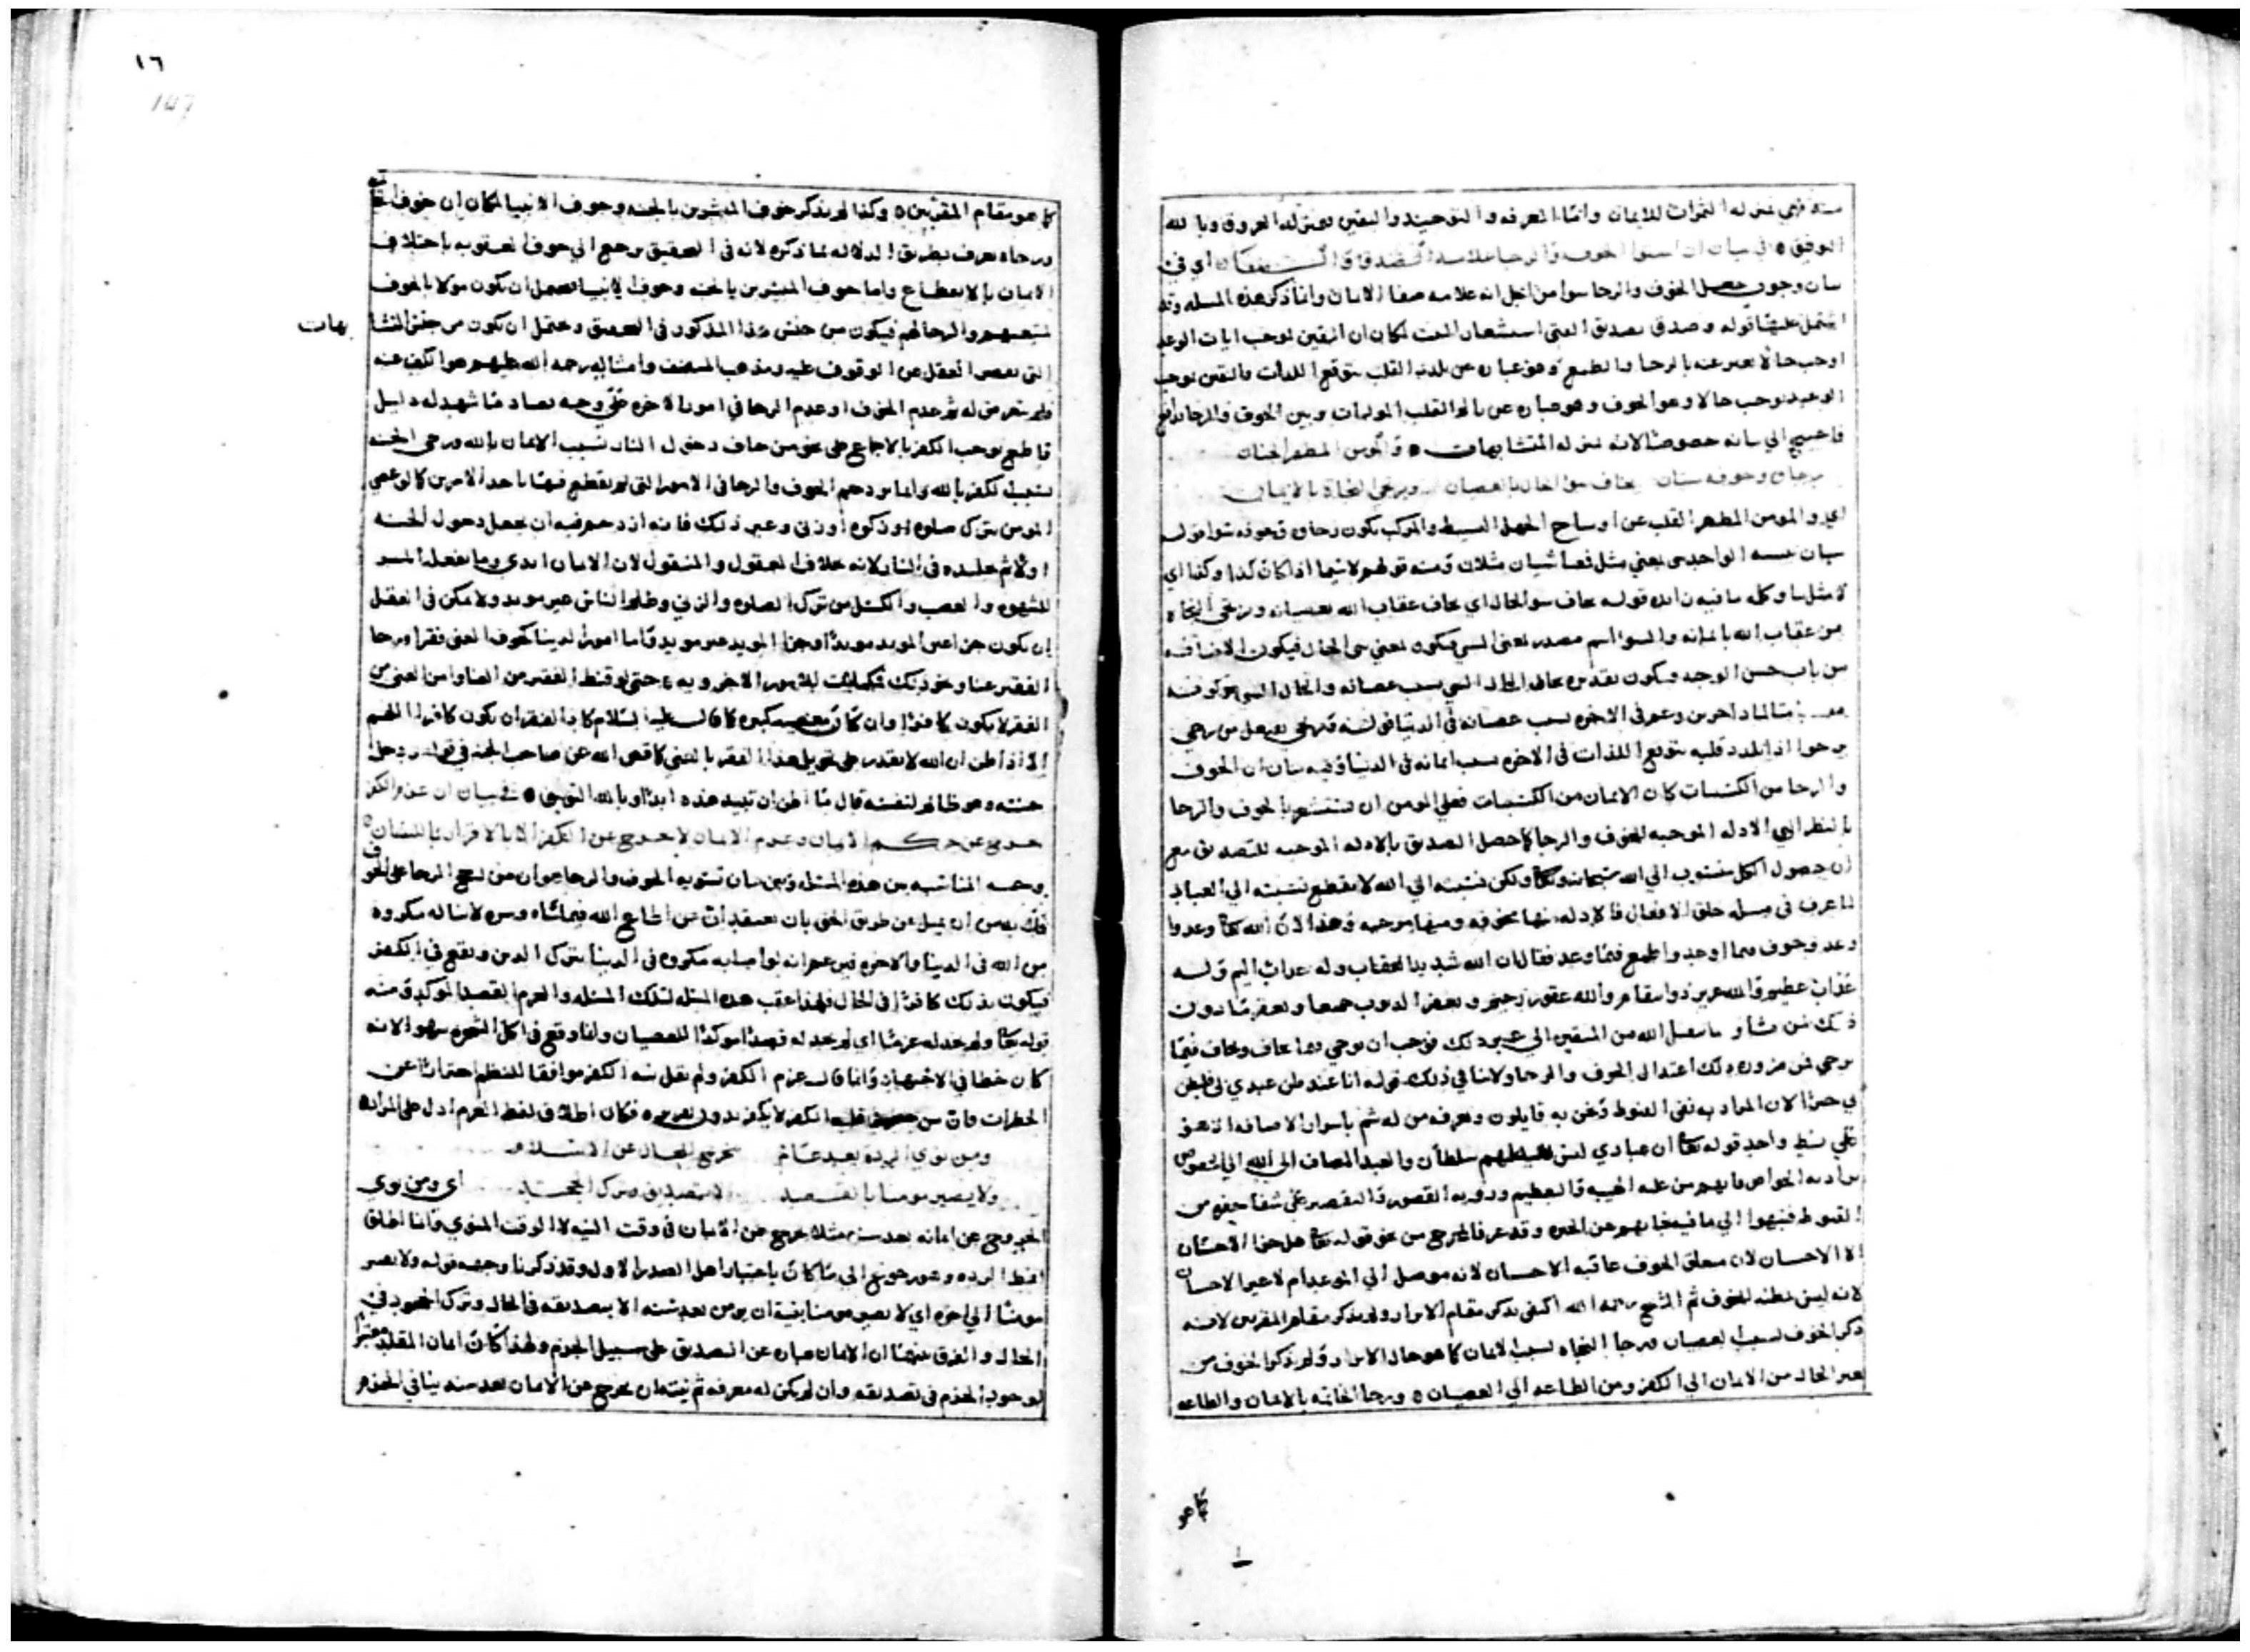 فهي بمنزله الثمرات للايمان واما المعرفه والتوحيد واليقين فبمنزله العروق وبالله
التوفيق ٥ في بيان ان استوا الخوف والرجا علامه الصدق اي في
بيان وجوب الخوف والرجا سوا من اجل انه علامه صفا الايمان وانما ذكر هذه المسله وقد
اشتمل عليها قوله وصدق تصديق استشعار لمكان ان اليقين بوجب ايات الوعد
اوجب حالا يعبر عنه بالرجا والطمع وهو عباره عن تلذذ القلب بتوقع اللذات واليقين بوجب
الوعيد يوجب حالا وهو الخوف وهو عباره عن تالم القلب وبين الخوف والرجا
فاحتيج الى بيانه خصوصا لانه بمنزله المتشابهات ٥ والمومن المطهر الجنان
رجاه وخوفه سيان يخاف سو الحال بالعصيان ويرجي النجاة بالايمان
اي والمومن المطهر القلب عن اوساخ الجهل البسيط والمركب يكون رجاه وخوفه سوا قوله
سيان الواحد سي بمعني مثل فمعنا سيان مثلان ومنه قولهم لاسيما اذا كان كذا وكذا اي
لا مثل ما وكله ما فيه زايده قوله يخاف سو الحال اي يخاف عقاب الله بعصيانه ويرجي النجاه
من عقاب الله بايمانه والسو اسم مصدر بمعني السي فيكون بمعني سي الحال فيكون الاضافه
من باب حسن الوجه ويكون تقديره يخاف الحال السي بسبب عصيانه والحال السي هو كونه
متالما وعم في الاخره بسبب عصيانه في الدنيا قوله ويرجي يفعل من رجي
يرجوا اذا تلذذ قلبه بتوقع اللذات في الاخره بسبب ايمانه في الدنيا وفيه بيان ان الخوف
والرجا من الكسبيات كان الايمان من الكسبيات فعلي المومن ان يستشعر بالخوف والرجا
بالنظر الى الادله الموجبه للخوف والرجا كما حصل التصديق بالادله الموجبه للتصديق مع
ان حصول الكل منسوب الى الله سبحانه وتعالى ولكن نسبته الى الله لا يقطع نسبته الى العباد
لما عرف في مسله خلق الافعال فالادله منها مخوفه ومنها مرجيه وهذا لان الله تعا وعد واوعد
وخوف فيما اوعد واطمع فيما وعد فقال ان الله شديد العقاب وله عذاب اليم وله
عذاب عظيم والله عزيز ذو انتقام والله غفور رحيم ويغفر الذنوب جميعا ويغفر ما دون
ذلك لمن يشا و يتقبل الله من المتقين الى غير ذلك فوجب ان يرجي فيما يخاف ويخاف فيما
يرجي فمن ضروره ذلك اعتدال الخوف والرجا ولا ينافي ذلك قوله انا عند ظن عبدي بي فليظن
بي خيرا لان المراد به نفي القنوط ونحن به قايلون ويعرفه من له شم باسرار الاضافه
علي نمط واحد قوله تعا ان عبادي ليس لك عليهم سلطان والعبد المضاف الى الله
يراد به الخواص
القنوط فنبهوا الي ما فيه نجاتهم وقد عرف المرجع من نحو قوله تعا هل جزا الاحسان
الا الاحسان لان متعلق الخوف عاقبه الاحسان لانه موصل الى الموعد ام لا غير الاحسان
لانه ليس مظنه للخوف ثم الشيخ رحمه الله اكتفى بذكر مقام الابرار ولم يذكر مقام المقربين لانه
ذكر الخوف بسبب العصيان ورجا النجاه بسبب الايمان كما هو حال الابرار ولم يذكر الخوف من
تغير الحال من الايمان الى الكفر ومن الطاعه الى العصيان ٥ ورجا الخاتمه بالايمان والطاعه
كما هو
١٦
147
كما هو مقام المقربين ٥ وكذا لم يذكر خوف المبشرين بالجنه وخوف الانبيا لمكان ان خوف
ورجاه يعرف بطريق الدلاله مما ذكره لانه في التحقيق يرجع الى خوف العقوبه باختلاف
الايمان بالانقطاع واما خوف المبشرين بالجنه وخوف الانبيا فيحتمل ان يكون مولا بالخوف
والرجا لهم فيكون من جنس هذا المذكور في التحقيق ويحتمل ان يكون من جنس المتشا
بهات
التي يقصر العقل عن الوقوف عليه ومذهب المصنف وامثاله رحمه الله عليهم هو الكف عنه
فلم يتعرض له ثم عدم الخوف او عدم الرجا في امور الاخره على وجه يضاد ما شهد له دليل
قاطع يوجب الكفر بالاجماع على نحو من خاف دخول النار بسبب الايمان بالله ورجي الجنه
بسبب الكفر بالله وانما يزدحم الخوف والرجا في الامور التي لم يقطع فيها باحد الامرين كما لو عصي
المومن بترك صلوه او زكوه او زني وغير ذلك فانه ازدحم فيه ان يجعل دخول الجنه
اولا ثم تخليده في النار لانه خلاف المعقول والمنقول لان الايمان ابدي وما يفعله المسر
للشهوه والغضب والكسل من ترك الصلوه والزني وظلم الناس غير موبد ولا يمكن في العقل
ان يكون جزا غير الموبد موبدا وجزا الموبد غير موبد واما امور الدنيا كخوف الغني فقرا ورجا
الفقير غنا ونحو ذلك للامور الاخرويه حتى لو قنط الفقير من الغنا وامن الغني من
الفقر لا يكون كافرا وان كان معصيه كبيره كما قال عليه السلام كاد الفقر ان يكون كفرا اللهم
الا اذا ظن ان الله لا يقدر على تحويل هذا الفقر بالغني كما قص الله عن صاحب الجنه في قوله ودخل
جنته وهو ظالم لنفسه قال ما اظن ان تبيد هذه ابدا وبالله التوفيق ٥ في بيان ان عزم الكفر
خروج عن حكم الايمان وعزم الايمان لا خروج عن الكفر الا بالاقرار باللسان ٥
وجه المناسبه بين هذه المسله وبين بيان تسويه الخوف والرجا هو ان من رجح الرجا على الخوف
فلعله يعتقد ان من اطاع الله فيما شاه وسره لا يناله مكروه
من الله في الدنيا والاخره انه لو اصابه مكروه في الدنيا يترك الدين ويقع في الكفر
فيكون بذلك كافرا في الحال فلهذا عقب هذه المسله لتلك المسله والعزم القصد الموكد ومنه
قوله تعا ولم نجد له عزما اي لم نجد له قصدا موكدا للعصيان وانما وقع في اكل الشجره سهوا لانه
كان خطا في الاجتهاد وانما قال عزم الكفر ولم يقل نيه الكفر موافقا للنظم احترازا عن
الخطرات فان من الكفر لا يكفر بدون عزمه ٥ فكان اطلاق لفظ العزم ادل على المراد ٥
ومن نوي الردة بعد عام يخرج بالحال عن الاسلام
ولا يصير مومنا بالقصد الا بتصديق وترك الجحد اي ومن نوي
الخروج عن ايمانه بعد سنه مثلا يخرج عن الايمان في وقت النيه لا الوقت المنوي وانما اطلق
لفظ الرده وهو رجوع الى ما كان باعتبار اهل الصدر الاول وقد ذكرنا وجهه قوله ولا يصير
مومنا الى اخره اي لا يصير مومنا بنيه ان يومن بعد سنه الا بتصديقه في الحال وترك الجحود في
الحال والفرق بينهما ان الايمان عباره عن التصديق على سبيل الجزم ولهذا كان ايمان المقلد معتبرا
لوجود الجزم في تصديقه وان لم يكن له معرفه ثم نيته ان يخرج عن الايمان بعد سنه ينافي الجزم